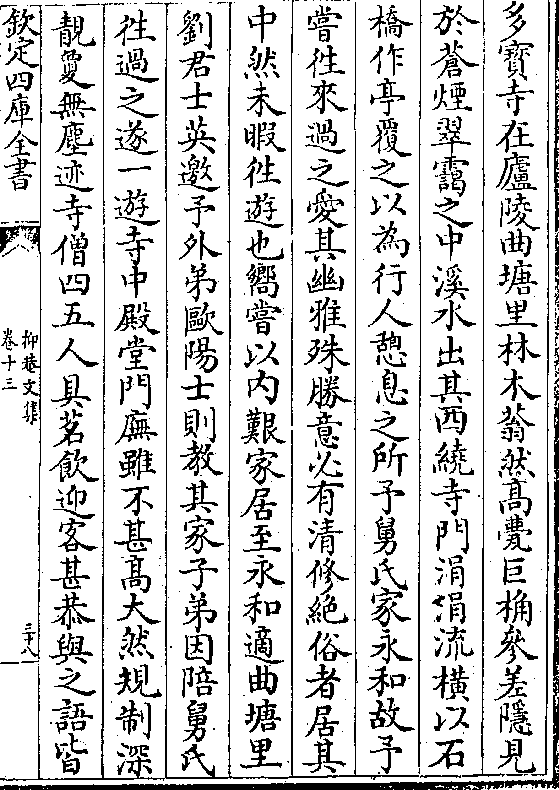 多寳寺在廬陵曲塘里林木蓊然髙甍巨桷參差隱見
於蒼煙翠靄之中溪水出其西繞寺門涓涓流横以石
橋作亭覆之以為行人憩息之所予舅氏家永和故予
嘗徃來過之愛其幽雅殊勝意必有清修絶俗者居其
中然未暇徃遊也嚮嘗以内艱家居至永和適曲塘里
劉君士英邀予外弟歐陽士則教其家子弟因陪舅氏
徃過之遂一遊寺中殿堂門廡雖不甚髙大然規制深
靚敻無塵迹寺僧四五人具茗飲迎客甚恭與之語皆
欽定四庫全書
抑菴文集
卷十三
三十八